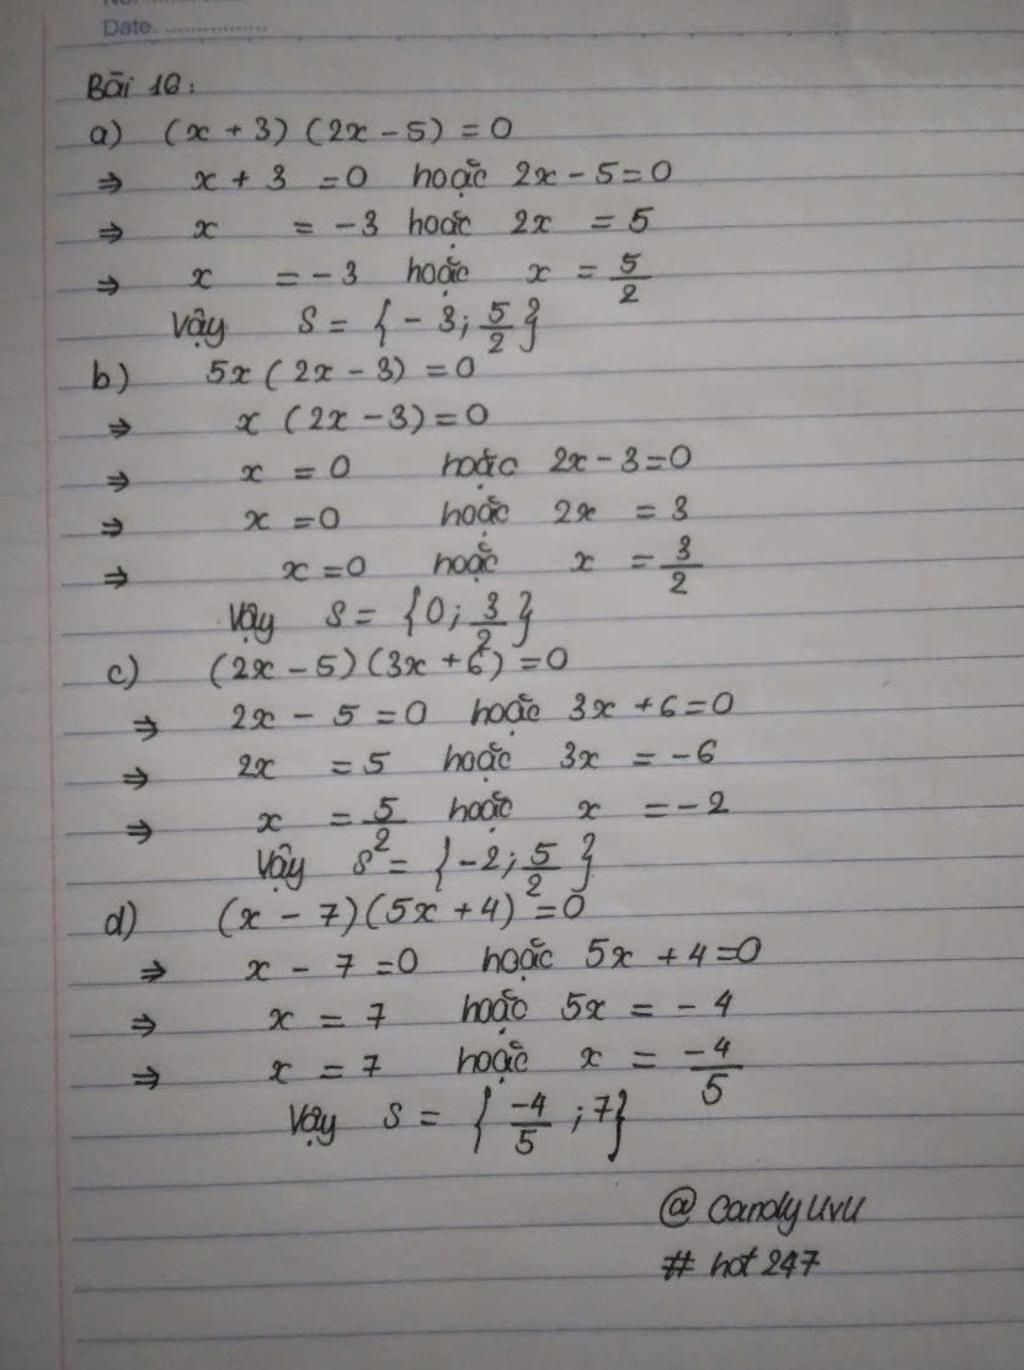 No. ..............
Date. ..............
Bài 16:
a) (x + 3) (2x - 5) = 0
⇒ x + 3 = 0 hoặc 2x - 5 = 0
⇒ x = -3 hoặc 2x = 5
⇒ x = -3 hoặc x = 5/2
Vậy S = {-3; 5/2}
b) 5x (2x - 3) = 0
⇒ x (2x - 3) = 0
⇒ x = 0 hoặc 2x - 3 = 0
⇒ x = 0 hoặc 2x = 3
⇒ x = 0 hoặc x = 3/2
Vậy S = {0; 3/2}
c) (2x - 5) (3x + 6) = 0
⇒ 2x - 5 = 0 hoặc 3x + 6 = 0
⇒ 2x = 5 hoặc 3x = -6
⇒ x = 5/2 hoặc x = -2
Vậy S = {-2; 5/2}
d) (x - 7) (5x + 4) = 0
⇒ x - 7 = 0 hoặc 5x + 4 = 0
⇒ x = 7 hoặc 5x = -4
⇒ x = 7 hoặc x = -4/5
Vậy S = {-4/5; 7}
@ CandyUvU
# hot 247